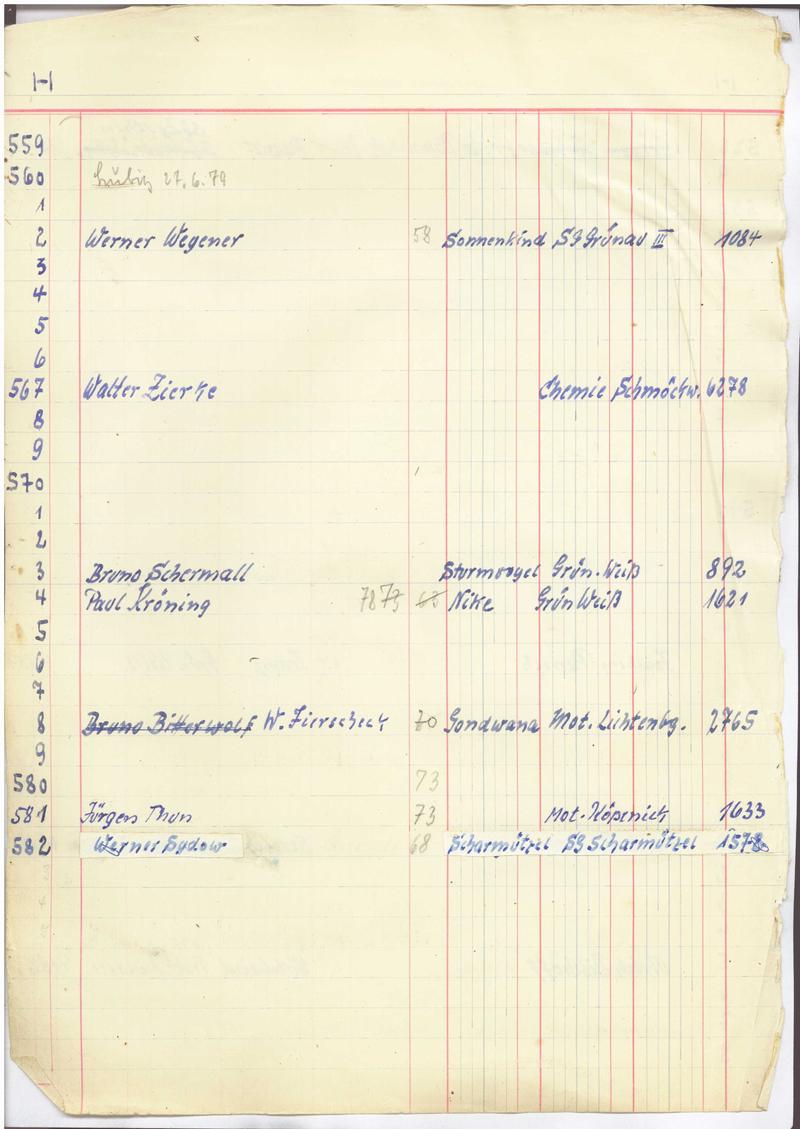 H
559
560 27.6.79
1
2 Werner Wegener 58 Sonnenkind SG Grünau III 1084
3
4
5
6
567 Walter Zierke Chemie Schmöckw. 6278
8
9
570
1
2
3 Bruno Schermall Sturmvogel Grün-Weiß 892
4 Paul Kröning 78 73 68 Nike Grün Weiß 1621
5
6
7
8 Bruno Bitterwolf W. Zierscheck 70 Gondwana Mot. Lichtenbg. 2765
9
580 73
581 Jürgen Thun 73 Mot. Köpenick 1633
582 Werner Sydow 68 Scharmützel SG Scharmützel 1578